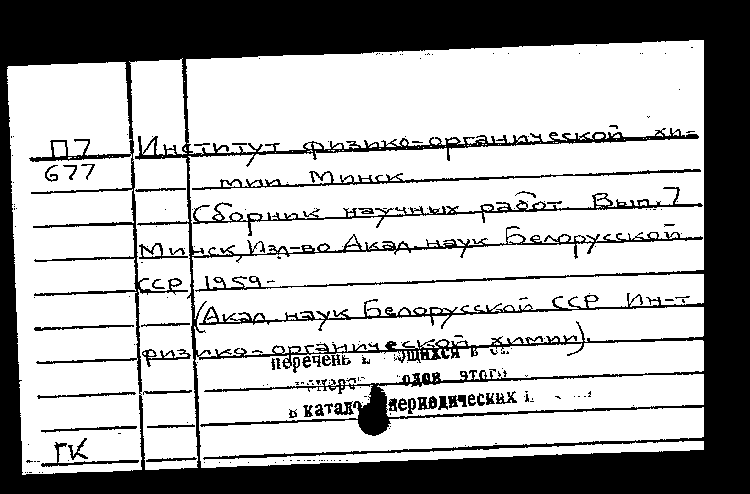 П7 Институт физико-органической хи-
677 мии. Минск.
Сборник научных работ Вып. 7
Минск, Изд-во Акад. наук Белорусской
ССР, 1959-
(Акад. наук Белорусской ССР Ин-т
физико-органической химии).
перечень в
этого
в периодических
ГК